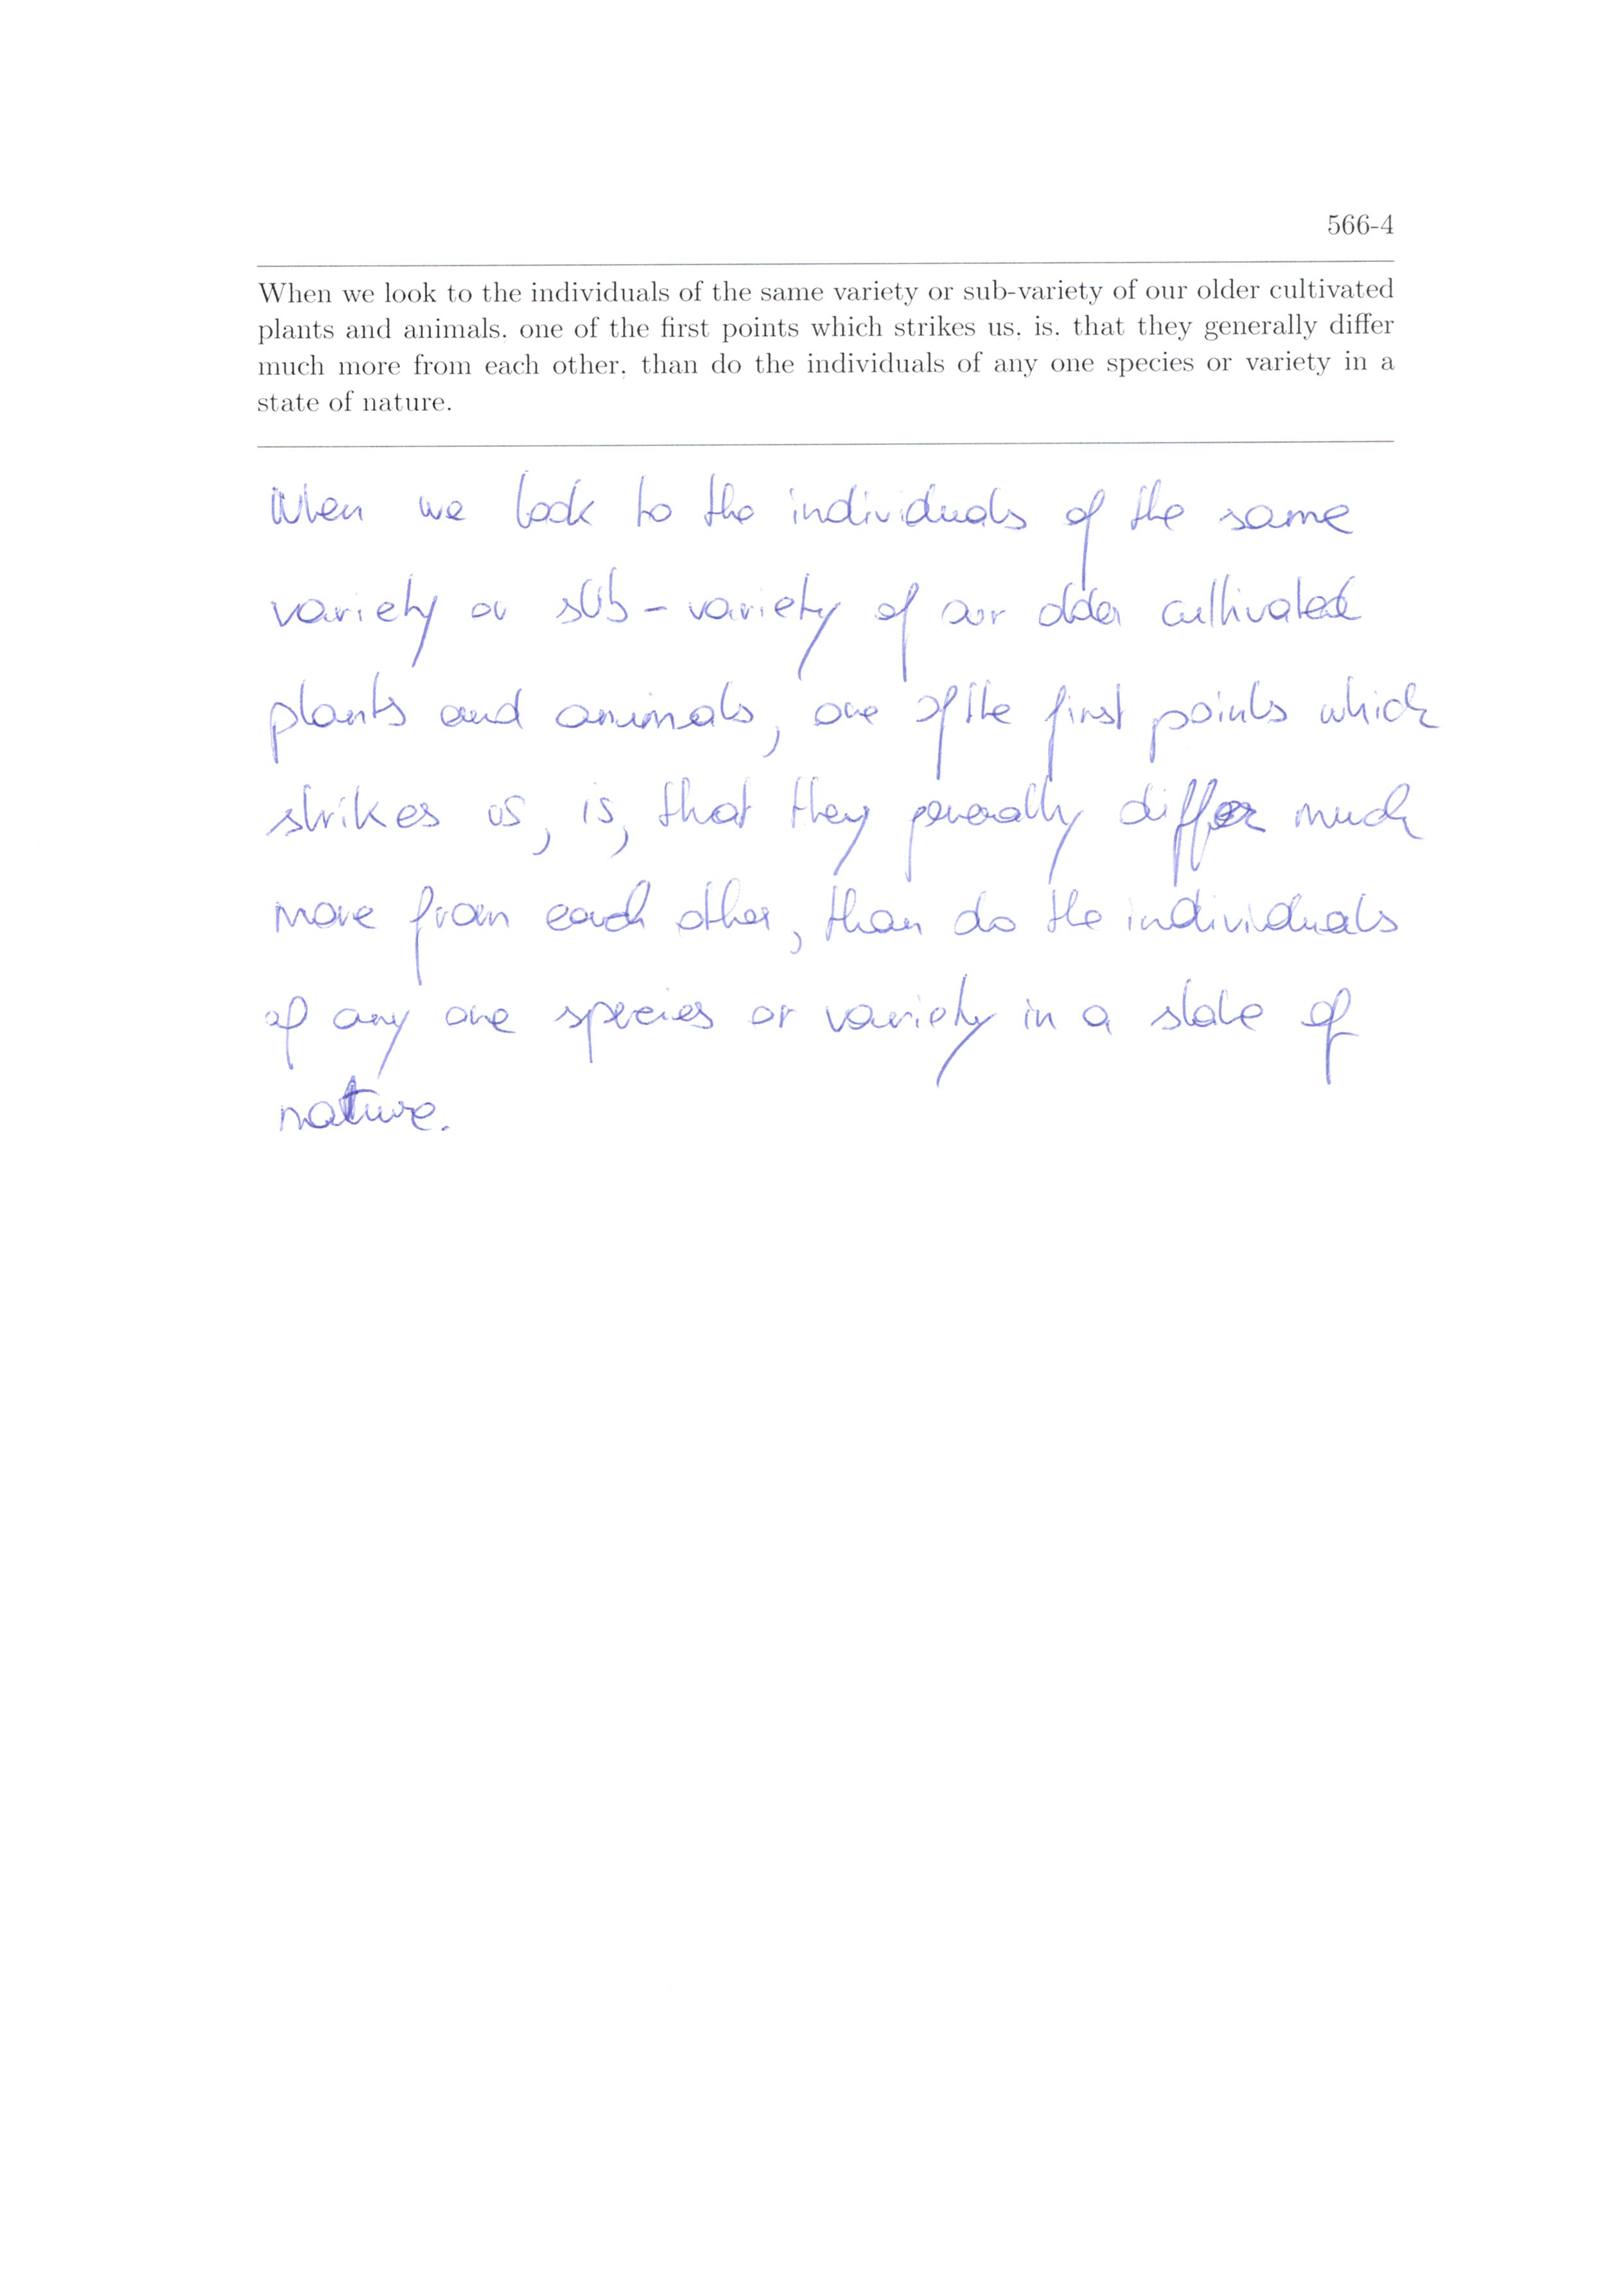 566-4
When we look to the individuals of the same variety or sub-variety of our older cultivated
plants and animals, one of the first points which strikes us, is, that they generally differ
much more from each other, than do the individuals of any one species or variety in a
state of nature.
When we look to the individuals of the same
variety or sub-variety of our older cultivated
plants and animals, one of the first points which
strikes us, is, that they generally differ much
more from each other, than do the individuals
of any one species or variety in a state of
nature.